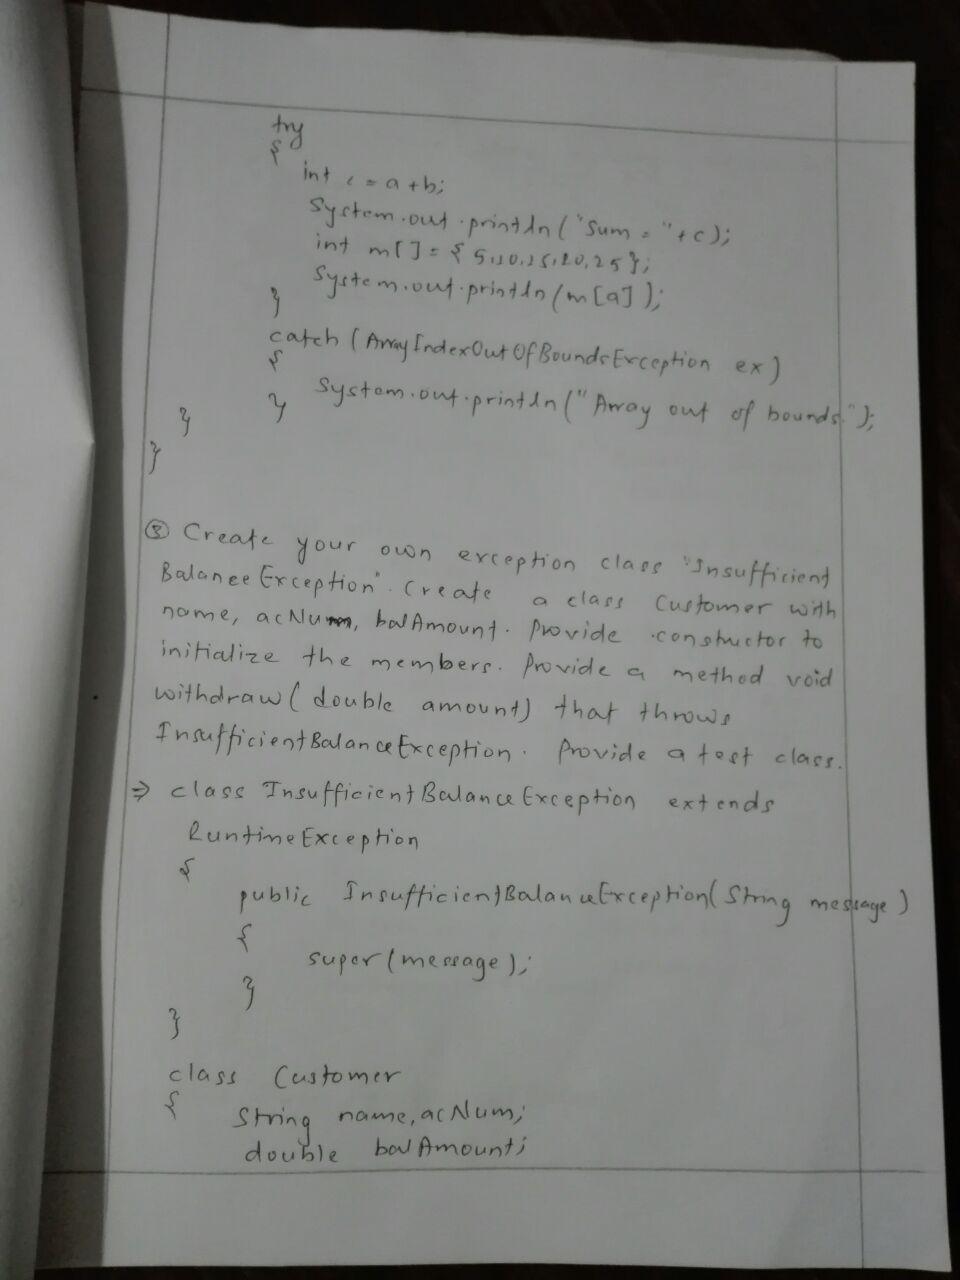 try
{
int c = a + b;
System.out.println("Sum = "+c);
int m[] = { 5,10,15,20,25 };
System.out.println(m[a]);
}
catch (ArrayIndexOutOfBoundsException ex)
{
System.out.println("Array out of bounds.");
} }
}
③ Create your own exception class "Insufficient
Balance Exception". Create a class Customer with
name, acNum, balAmount. Provide constructor to
initialize the members. Provide a method void
withdraw( double amount) that throws
InsufficientBalanceException. Provide a test class.
⇒ class InsufficientBalanceException extends
RuntimeException
{
public InsufficientBalanceException(String message)
{
super(message);
}
}
class Customer
{ String name, acNum;
double balAmount;